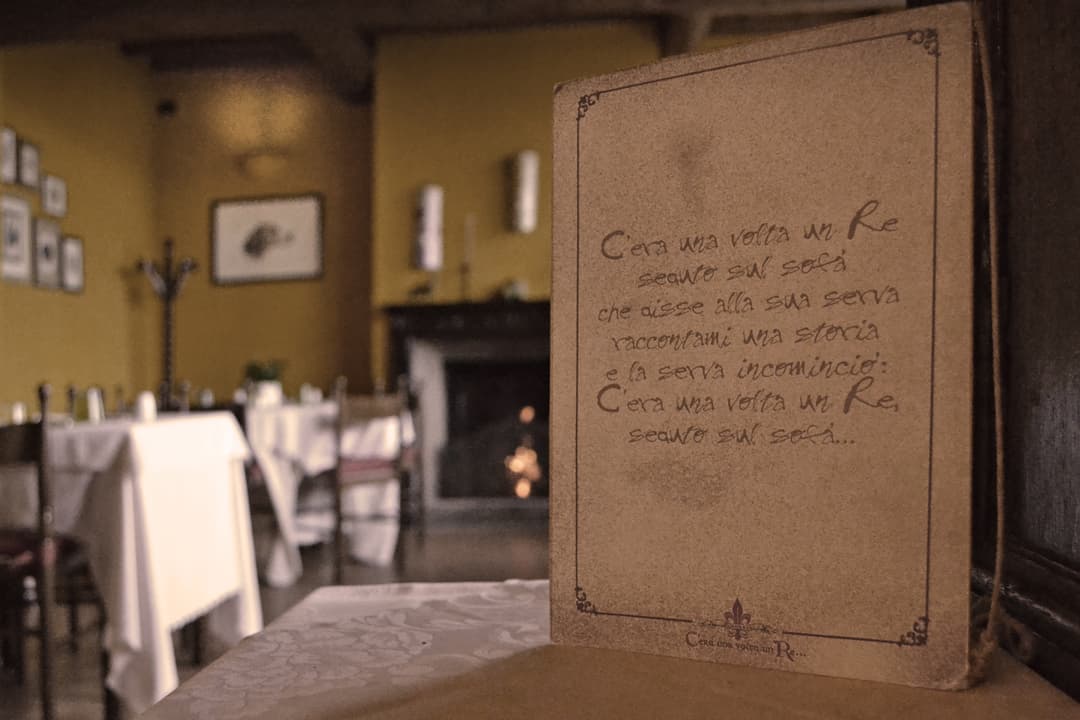 C'era una volta un Re
seduto sul sofà
che disse alla sua serva
raccontami una storia
e la serva incominciò:
C'era una volta un Re,
seduto sul sofà...
C'era una volta un Re...